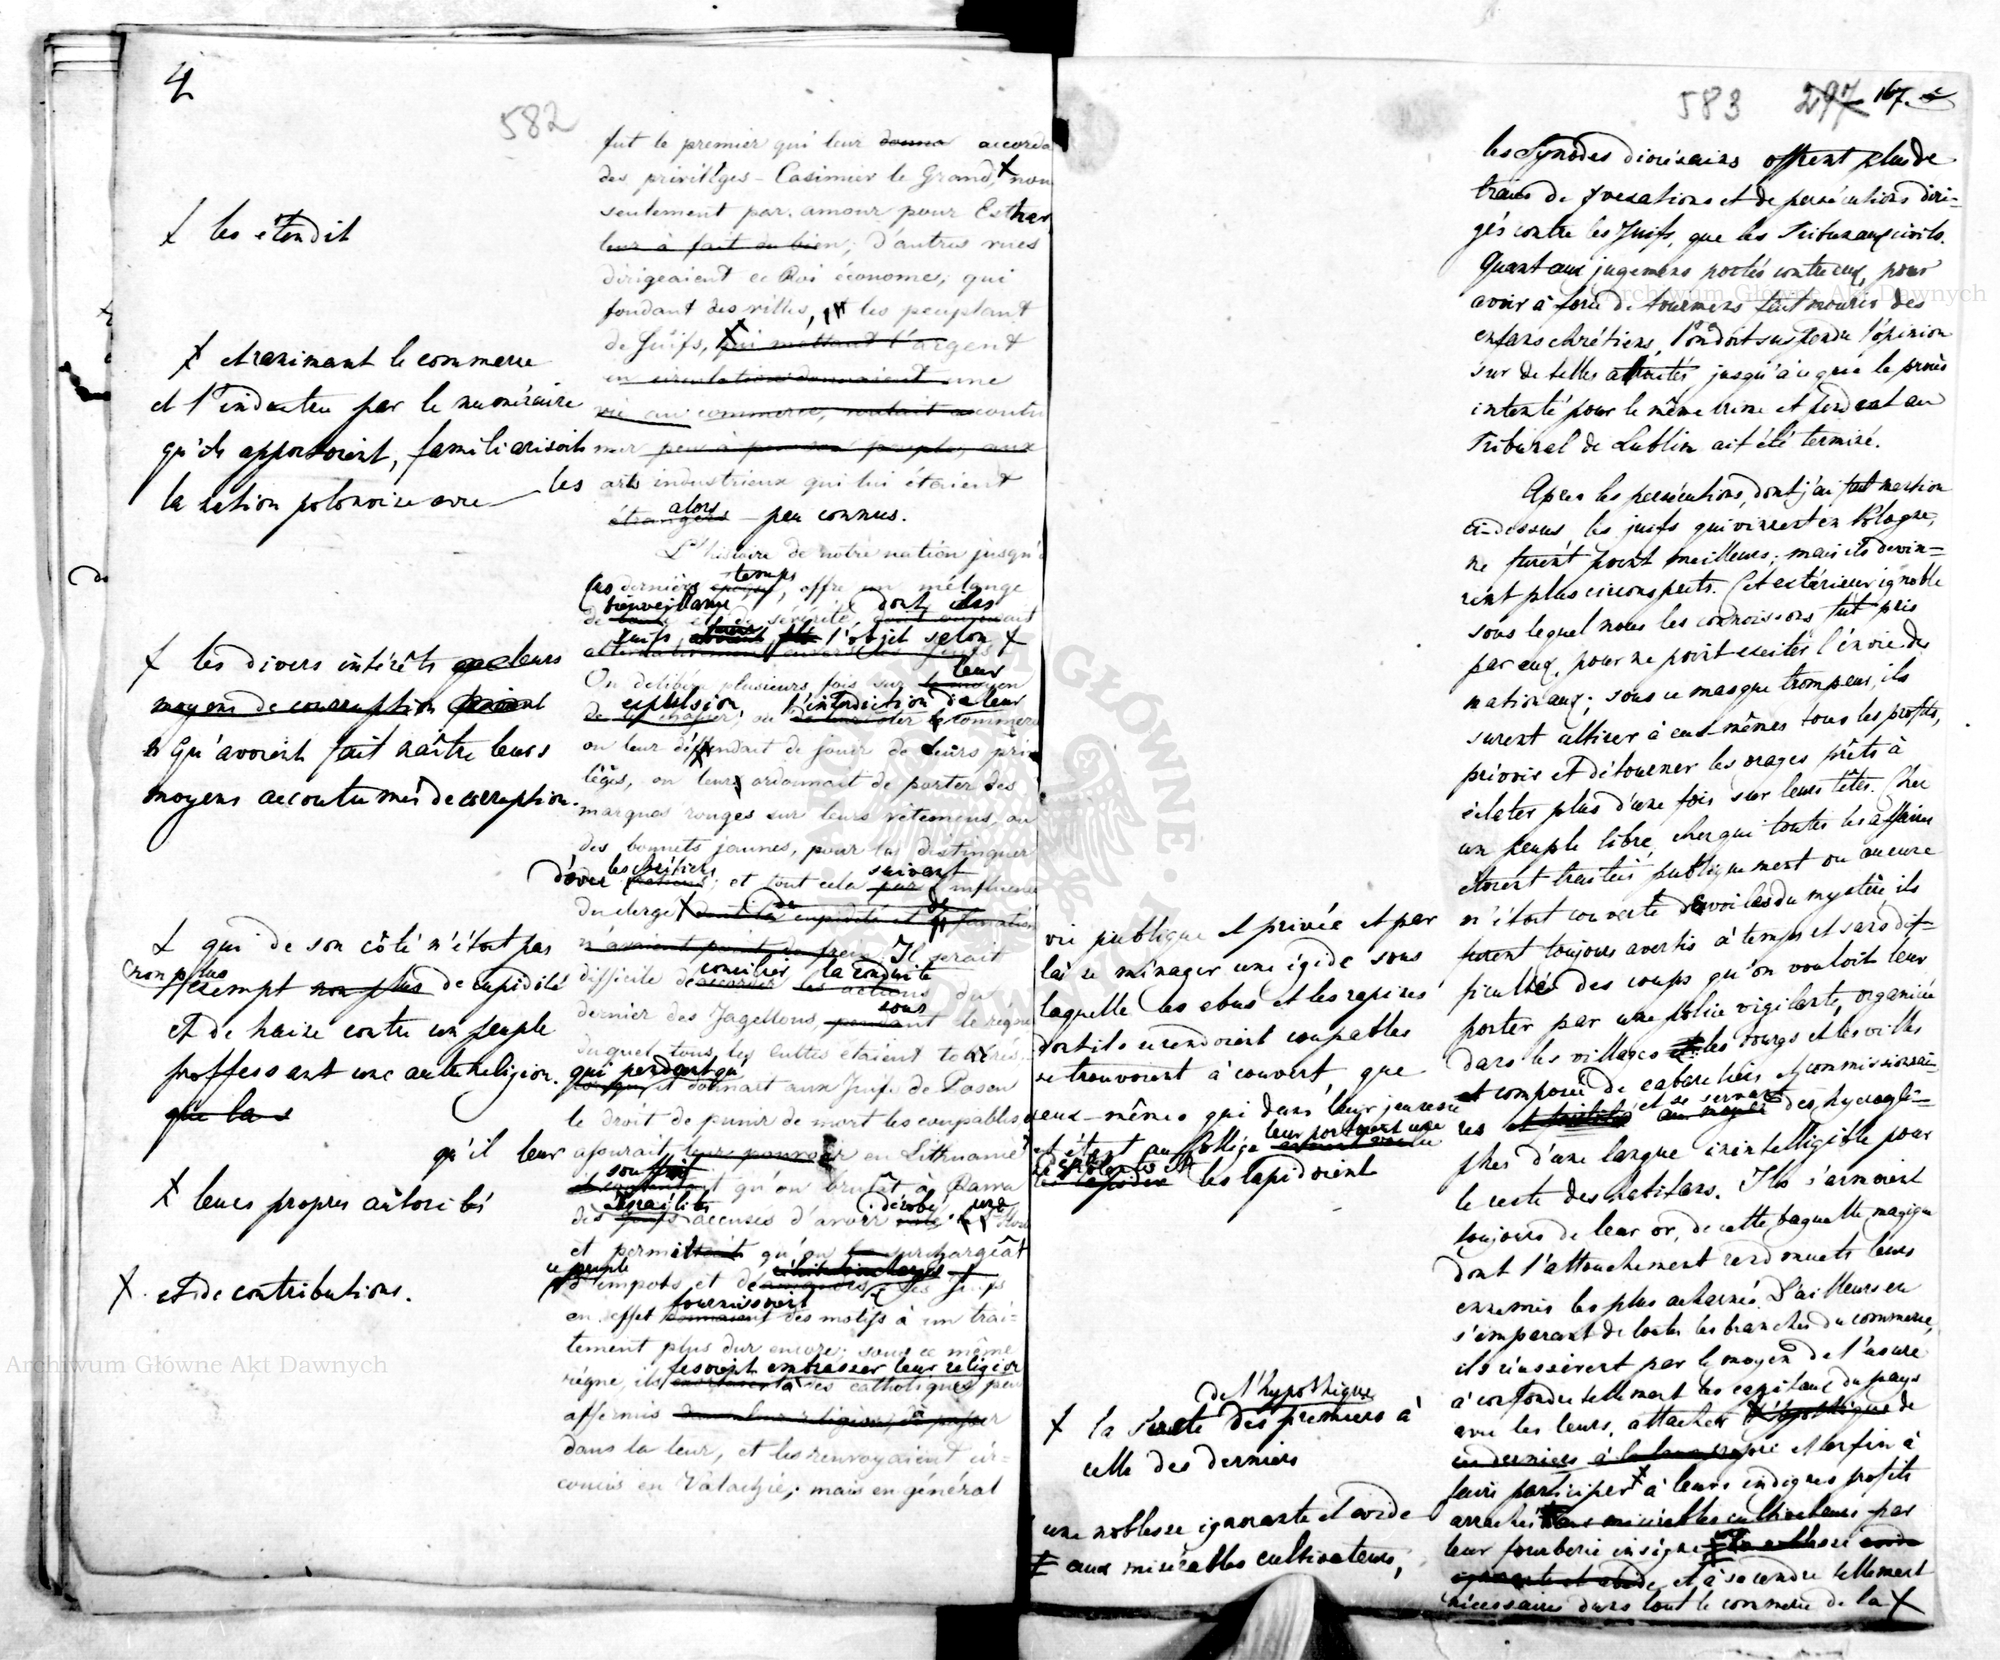 4
582
fut le premier qui leur donna accorda
des privilèges - Casimier le Grand, X non
seulement par amour pour Esther
leur à fait du bien; d'autres vues
dirigeaient ce Roi économe; qui
fondant des villes, et les peuplant
de Juifs, X qui mettant l'argent
en circulation donnaient une
vie au commerce, voulait accoutu
mer peu à peu son peuple aux
les arts industrieux qui lui étaient
étrangers alors peu connus.
L'histoire de notre nation jusqu'à
ces derniers temps, offre un mélange
de bienveillance et de sévérité, dont les
Juifs l'objet selon X
On délibéra plusieurs fois sur leur
expulsion, ou l'interdiction de leur commerce
on leur deffendait de jouir de leurs privi
lèges, on leur ordonnait de porter des
marques rouges sur leurs vêtemens, ou
des bonnets jaunes, pour les distinguer
d'avec les chrétiens; et tout cela suivant l'influence
du clergé X dont la cupidité et le fanatisme
n'avaient point de frein. Il serait
difficile de concilier la conduite du
dernier des Jagellons, sous le règne
duquel tous les cultes étaient tolérés,
qui pendant qu'il donnait aux Juifs de Posen
le droit de punir de mort les coupables,
qu'il leur assurait leur pouvoir en Lithuanie X
souffrit qu'on brulât à Rawa
des israélites accusés d'avoir dérobé une
et permit qu'on surchargeât
ce peuple d'impots, et X les Juifs
en effet fournissoient des motifs à un trai-
tement plus dur encore; sous ce même
règne, ils fesoient embrasser leur religion à des catholiques peu
affermis dans leur religion,
dans la leur, et les renvoyaient cir-
concis en Valachie; mais en général
X les étendit
X et ranimant le commerce
et l'industrie par le numéraire
qu'ils apportoient, familiarisoit
la nation polonaise avec
X les divers intérêts que leurs
moyens de corruption
qu'avoient fait naître leurs
moyens accoutumés de corruption.
X qui de son côté n'étoit pas
non plus exempt non plus de cupidité
et de haine contre un peuple
proffessant une autre religion.
que la
X leurs propres autorités
X et de contributions.
583 297 167.
les Synodes diocésains offrent plus de
traces de vexations et de persécutions diri-
gés contre les Juifs, que les Tribunaux civils.
Quant aux jugemens portés contre eux, pour
avoir à force de tourmens fait mourir des
enfans chrétiens, l'on doit suspendre l'opinion
sur de telles atrocités jusqu'à ce que le procès
intenté pour le même crime et pendant au
Tribunal de Lublin ait été terminé.
Après les persécutions, dont j'ai fait mention
ci-dessus les juifs qui vinrent en Pologne,
ne furent point meilleurs; mais ils devin-
rent plus circonspects. Cet extérieur ignoble
sous lequel nous les connoissons fut pris
par eux, pour ne point exciter l'envie des
nationaux; sous ce masque trompeur, ils
surent attirer à eux-mêmes tous les profits,
prévoir et détourner les orages prêts à
éclater plus d'une fois sur leurs têtes. Chez
un peuple libre, chez qui toutes les affaires
étoient traitées publiquement ou aucune
n'étoit couverte des voiles du mystère, ils
furent toujours avertis à temps et sans dif-
ficultés des coups qu'on vouloit leur
porter par une police vigilante, organisée
dans les villages et les bourgs et les villes
et composée de cabaretiers et commissionnai-
res et se servant des hyerogli-
phes d'une langue inintelligible pour
le reste des habitans. Ils s'armoient
toujours de leur or, de cette baguette magique
dont l'attouchement rend muets leurs
ennemis les plus acharnés. D'ailleurs en
s'emparant de toutes les branches du commerce,
ils réussirent par le moyen de l'usure
à confondre tellement les capitaux du pays
avec les leurs, attacher l'hypothèque de
ces derniers à la leur propre et enfin à
faire participer X à leurs indignes profits
arrachés aux misérables cultivateurs par
leur fourberie insigne la noblesse avide
ignorante et avide, et à se rendre tellement
nécessaires dans tout le commerce de la X
vie publique et privée et par
là se ménager une égide sous
laquelle les abus et les rapines
dont ils se rendoient coupables
se trouvoient à couvert, que
ceux-mêmes qui dans leur jeunesse
et étant au Collège leur portoient une
les lapidoient
X la sureté de l'hypothèque des premiers à
celle des derniers
une noblesse ignorante et avide
‡ aux misérables cultivateurs,
Archiwum Główne Akt Dawnych
Archiwum Główne Akt Dawnych